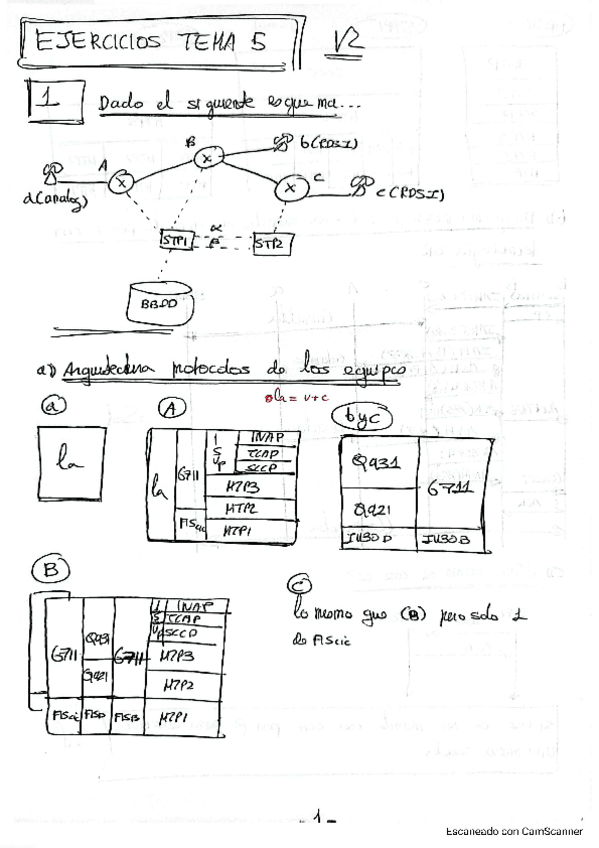 EJERCICIOS TEMA 5 V2
1 Dado el siguiente esquema...
A
B
b(RDSI)
a(analog)
x
x
C
x
c(RDSI)
STP1
α
β
STP2
BBDD
a) Arquitectura protocolos de los equipos
la = v+c
a
la
A
la
G711
FIScic
ISUP
INAP
TCAP
SCCP
MTP3
MTP2
MTP1
b y c
Q931
G711
Q921
B
G711
Q931
Q921
G711
ISUP
INAP
TCAP
SCCP
MTP3
MTP2
FIScic
FISD
FISB
MTP1
C
lo mismo que (B) pero solo 1
de FIScic
- 1 -
Escaneado con CamScanner